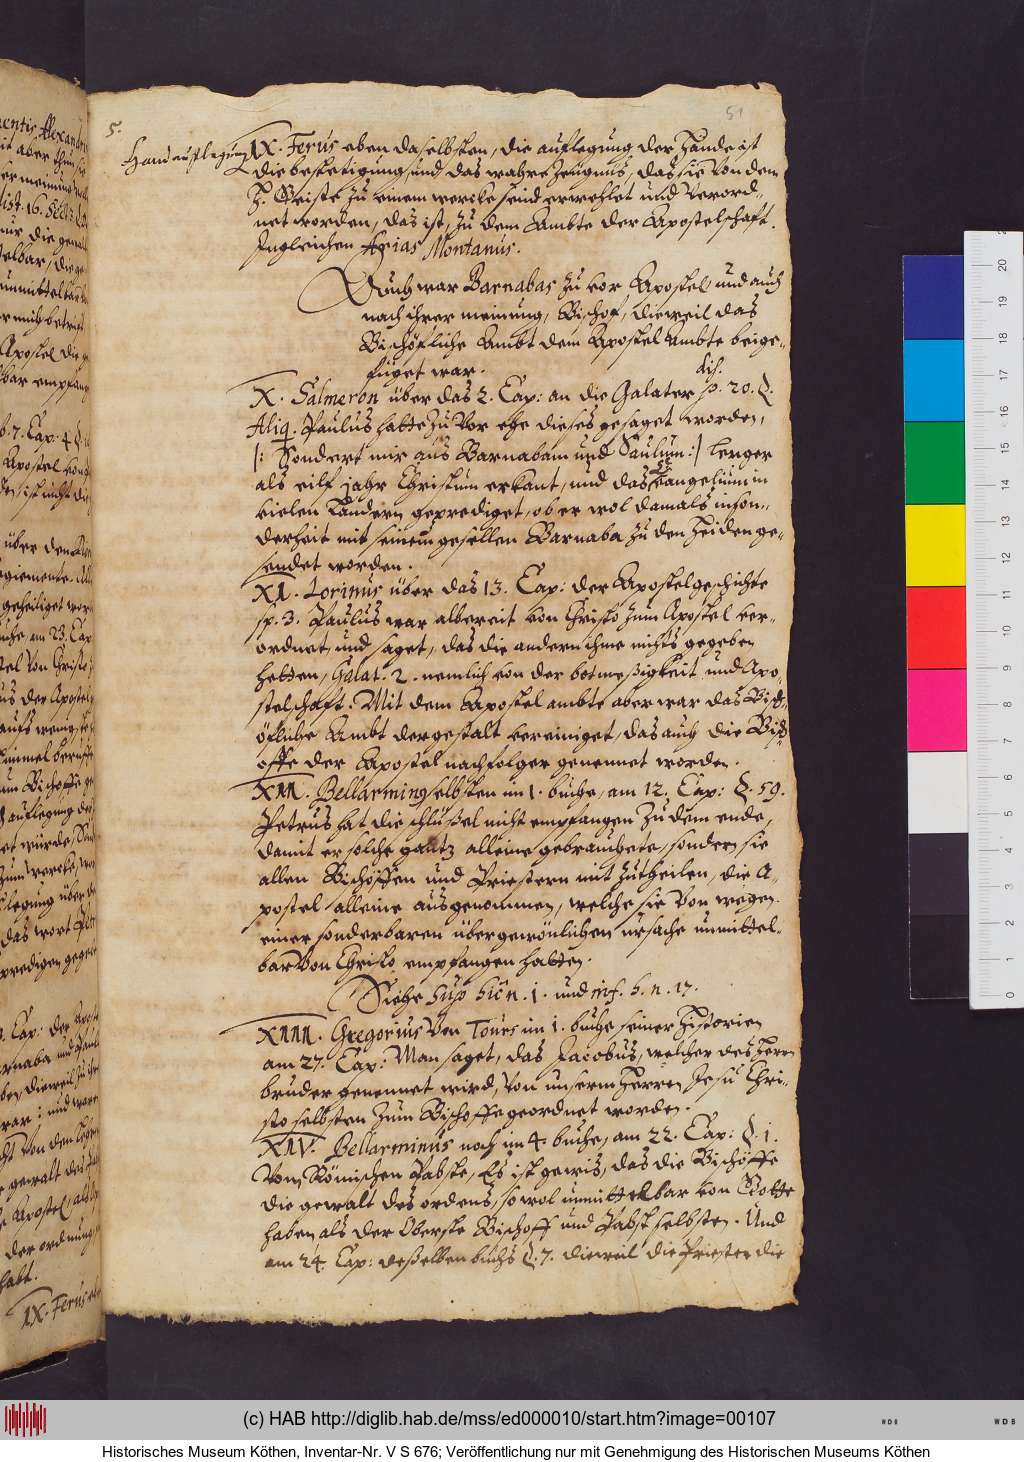 51
5.
Handauflegung
IX. Ferus eben daselbsten, die auflegung der Hände ist
die bestetigung und das wahre zeugnus, das sie von dem
H. Geiste zu einem wercke seind erwehlet und verord-
net worden, das ist, zu dem Ambte der Apostelschaft.
Ingleichen Arias Montanus.
Auch war Barnabas zuvor Apostel und auch
nach ihrer meinung, Bischof, dieweil das
Bischöfliche Ambt dem Apostel Ambte beige-
füget war.
X. Salmeron über das 2. Cap: an die Galater dis. p. 20. §.
Aliq. Paulus hatte zuvor ehe dieses gesaget worden,
/: Sondert mir aus Barnabam und Saulum :/ lenger
als eilf jahr Christum erkant, und das Evangelium in
vielen Ländern geprediget, ob er wol damals inson-
derheit mit seinem gesellen Barnaba zu den Heiden ge-
sendet worden.
XI. Lorinus über das 13. Cap: der Apostelgeschichte
sp. 3. Paulus war albereit von Christo zum Apostel ver-
ordnet, und saget, das die andern ihme nichts gegeben
hetten, Galat. 2. nemlich von der botmeßigkeit und Apo-
stelschaft. Mit dem Apostel ambte aber war das Bisch-
öfliche Ambt dergestalt vereiniget, das auch die Bisch-
offe der Apostel nachfolger genennet worden.
XII. Bellarminus selbsten im 1. buche, am 12. Cap: §. 59.
Petrus hat die schlüssel nicht empfangen zu dem ende,
damit er solche gantz alleine gebrauchete, sondern sie
allen Bischöffen und Priestern mit zutheilen, die A-
postel alleine ausgenommen, welche sie von wegen
einer sonderbaren übergewönlichen ursache unmittel-
bar von Christo empfangen hatten.
Siehe sup hîc n. 1. und inf. h. n. 17.
XIII. Gregorius von Tours im 1. buche seiner Historien
am 27. Cap: Man saget, das Jacobus, welcher des Herrn
bruder genennet wird, von unserm Herren Jesu Chri-
sto selbsten zum Bischoffe geordnet worden.
XIV. Bellarminus noch im 4. buche, am 22. Cap: §. 1.
Vom Römischen Pabste, Es ist gewis, das die Bischöffe
die gewalt des ordens, sowol unmittelbar von Gotte
haben als der Oberste Bischoff und Pabst selbsten. Und
am 24. Cap: desselben buchs §. 7. dieweil die Priester die
(c) HAB http://diglib.hab.de/mss/ed000010/start.htm?image=00107
Historisches Museum Köthen, Inventar-Nr. V S 676; Veröffentlichung nur mit Genehmigung des Historischen Museums Köthen